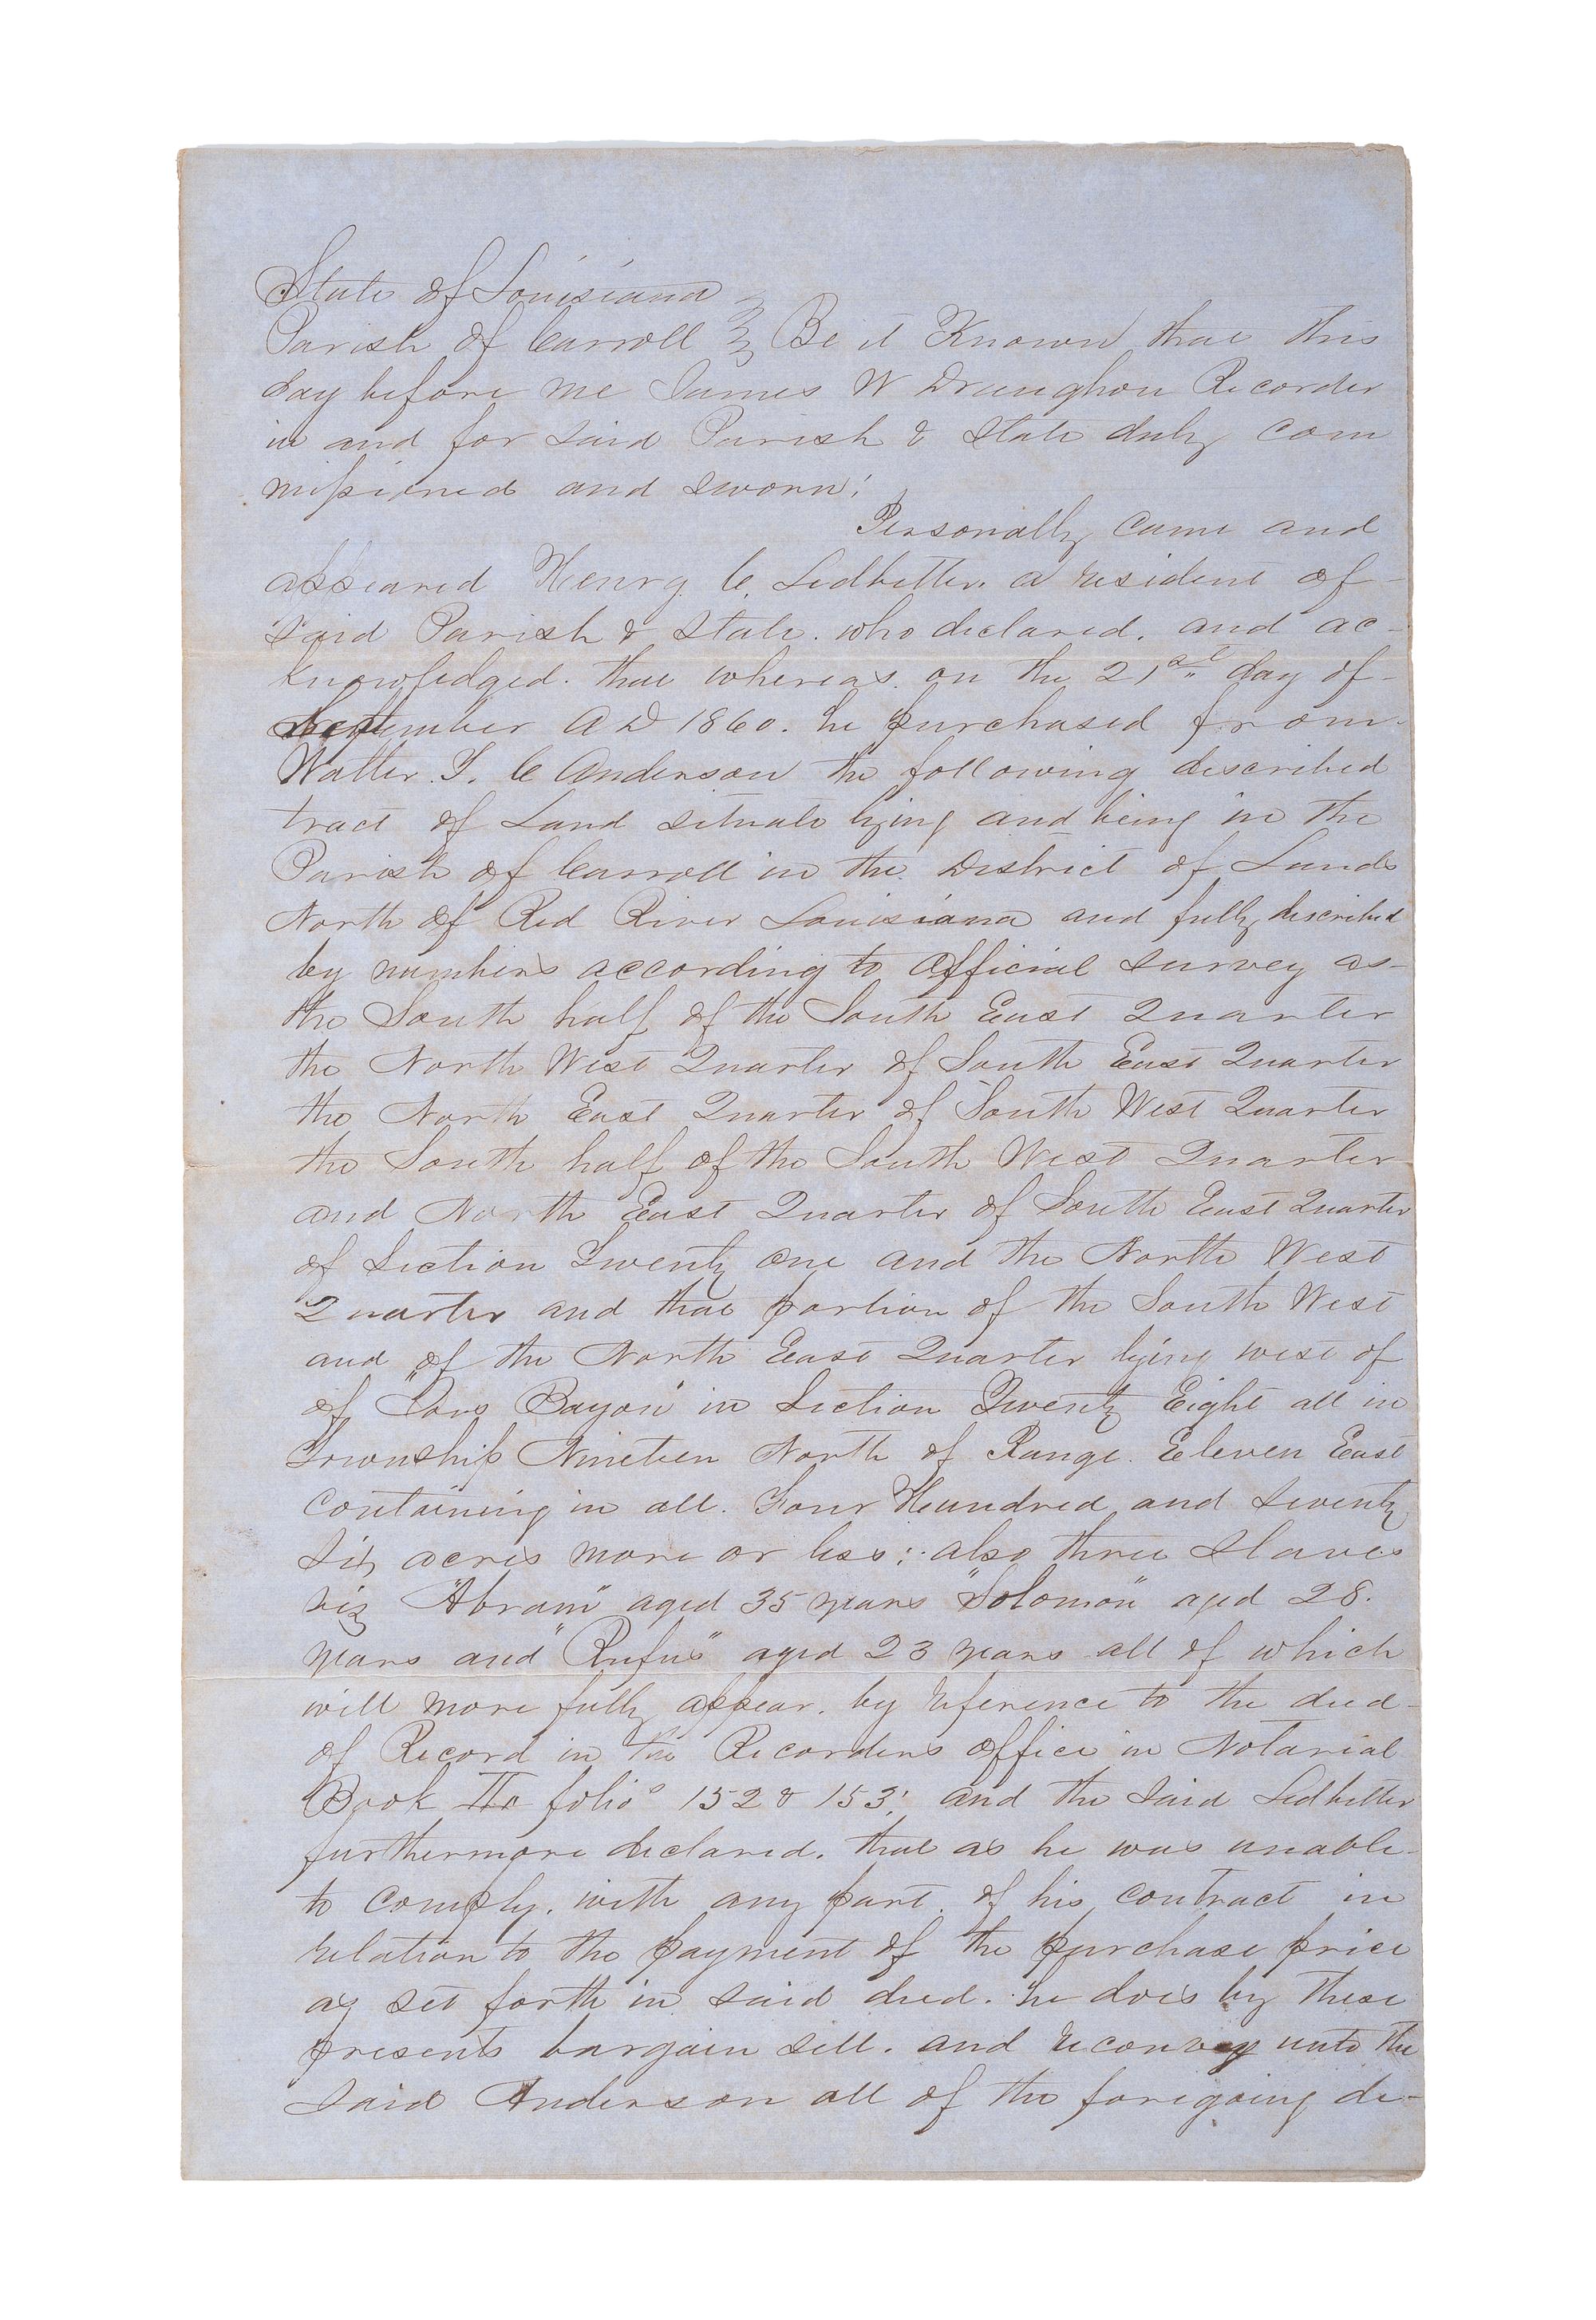 State of Louisiana
Parish of Carroll } Be it Known that this
day before me James W Draughon Recorder
in and for said Parish & State duly com
missioned and sworn;
Personally came and
appeared Henry C. Ledbetter. a resident of
said Parish & State. who declared. and ac-
knowledged. that whereas. on the 21st day of
September A D 1860. he purchased from
Walter T. C Anderson the following described
tract of Land situate lying and being in the
Parish of Carroll in the District of Lands
North of Red River Louisiana and fully described
by numbers according to Official survey as
the South half of the South East Quarter
the North West Quarter of South East Quarter
the North East Quarter of South West Quarter
the South half of the South West Quarter
and North East Quarter of South East Quarter
of Section Twenty one and the North West
Quarter and that portion of the South West
and of the North East Quarter lying west of
of Bayou" in Section Twenty Eight all in
Township Nineteen North of Range. Eleven East
containing in all. Four Hundred and seventy
six acres more or less; also three Slaves
viz "Abram" aged 35 years "Solomon" aged 28.
years and "Rufus" aged 23 years all of which
will more fully appear. by reference to the deed
of Record in the Recorders office in Notarial
Book folio 152 & 153; and the said Ledbetter
furthermore declared. that as he was unable
to comply. with any part. of his contract in
relation to the payment of the purchase price
as set forth in said deed. he does by these
presents bargain sell. and reconvey unto the
said Anderson all of the foregoing de-